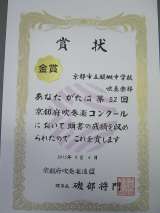 賞状
金賞
京都市立醍醐中学校
吹奏楽部
あなたがたは第52回
京都府吹奏楽コンクール
において頭書の成績を収め
られたのでこれを賞します
2015年8月4日
京都府吹奏楽連盟
理事長 磯部将門